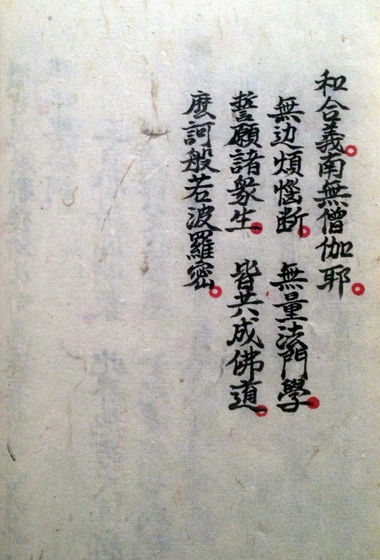 和合義南無僧伽耶
無边煩惱断 無量法門學
誓願諸衆生 皆共成佛道
麽訶般若波羅密